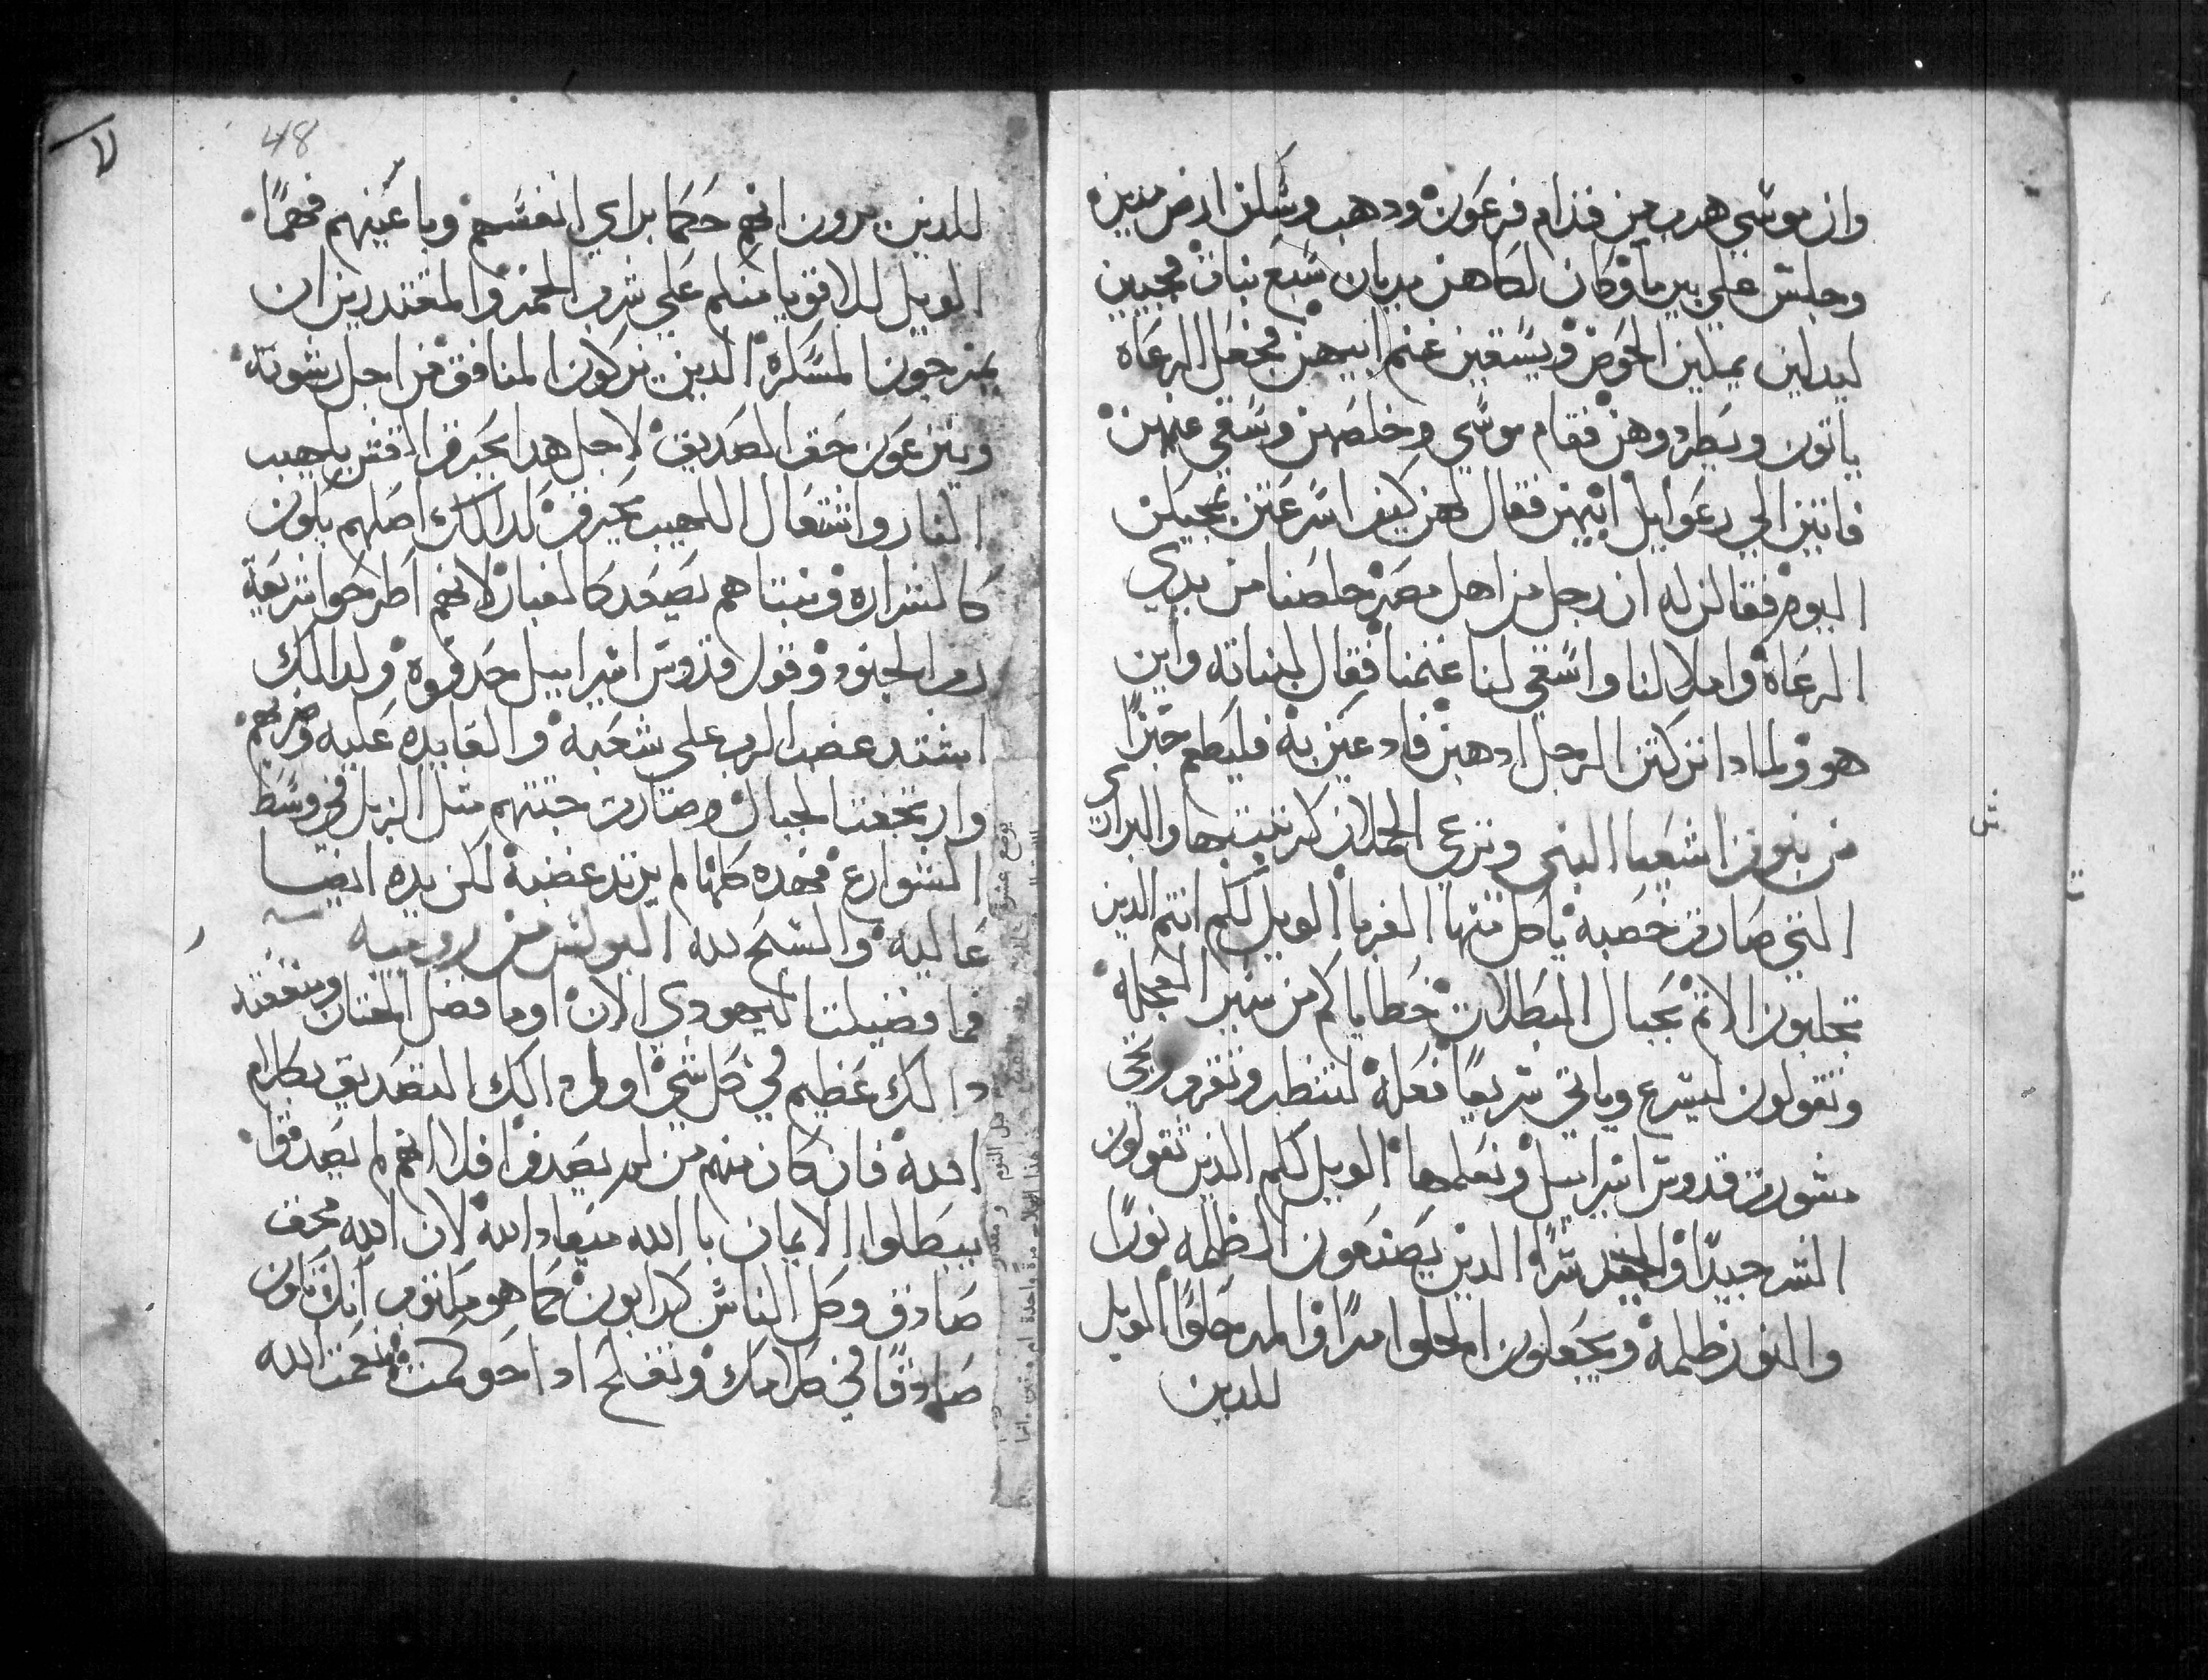 وان موسي هرب من قدام فرعون ودهب وسكن ارض مدين
وجلس علي بير ماء وكان لكاهن مديان سبع بنات فجيين
ليدلين يملين الحوض ويسقين غنم ابيهن فجعل الرعاه
ياتون ويطردوهن فقام موسي وخلصهن وسقي عنهن
فاتين الي رعوايل ابيهن فقال لهن كيف اسرعتن بمجيكن
اليوم فقالن له ان رجل من اهل مصر خلصنا من يدي
الرعاة واملا لنا واسقي لنا غنمنا فقال لبناته واين
هو ولمادا تركتن الرجل ادهبن فادعين به فليطعم خبزا
من بنوة اشعيا النبي وترعي الحملان كترتيبها والبراري
التي صارت خصبة ياكل منها الغربا الويل لكم انتم الدين
تجلبون الاثم بحبال البطلات خطاياكم من سير العجلة
وتقولون ليسرع وياتي سريعا فعله لننظر وتقرب وتجي
مشورة قدوس اسراييل ونعلمها الويل لكم الدين تقولون
الشر جيدا والجيد شرا الدين يصنعون الظلمه نورا
والنور ظلمة ويجعلون الحلوا مرا والمر حلوا الويل
للدين
48
للدين يرون انهم حكما براي انفسهم وباعينهم فهما
الويل للاقويا منكم علي شرب الخمر والمقتدرين ان
يمزجون المسكرة الدين يزكون المنافق من اجل رشوته
وينزعون حق الصديق لاجل هدا يحترق القش بلهيب
النار واشتعال اللهيب يحترق لدالك اصلهم يكون
كالشراره ونبتاهم يصعد كالغبار لانهم اطرحوا شريعة
رب الجنود وقول قدوس اسراييل جدفوه ولدالك
اشتد غضب الرب علي شعبه والقا يده عليه وضربهم
وارتجفت الجبال وصارت جثتهم مثل الزبل في وسط
الشوارع فهده كلها لم يرتد غضبه لكن يده ايضا
عاليه والسبح لله البولس من رومية
فما فضيلت اليهودي الان اوما فضل الختان ومنفعته
دالك عظيم في كل شي اولي دالك التصديق بكلام
الله فان كان منهم من لم يصدقوا فلا انهم لم يصدقوا
يبطلوا الايمان بالله معاد الله لان الله محق
صادق وكل الناس كدابون كما هو مكتوب انك تكون
صادقا في كلامك وتفلح ادا حوكمت نعمت الله